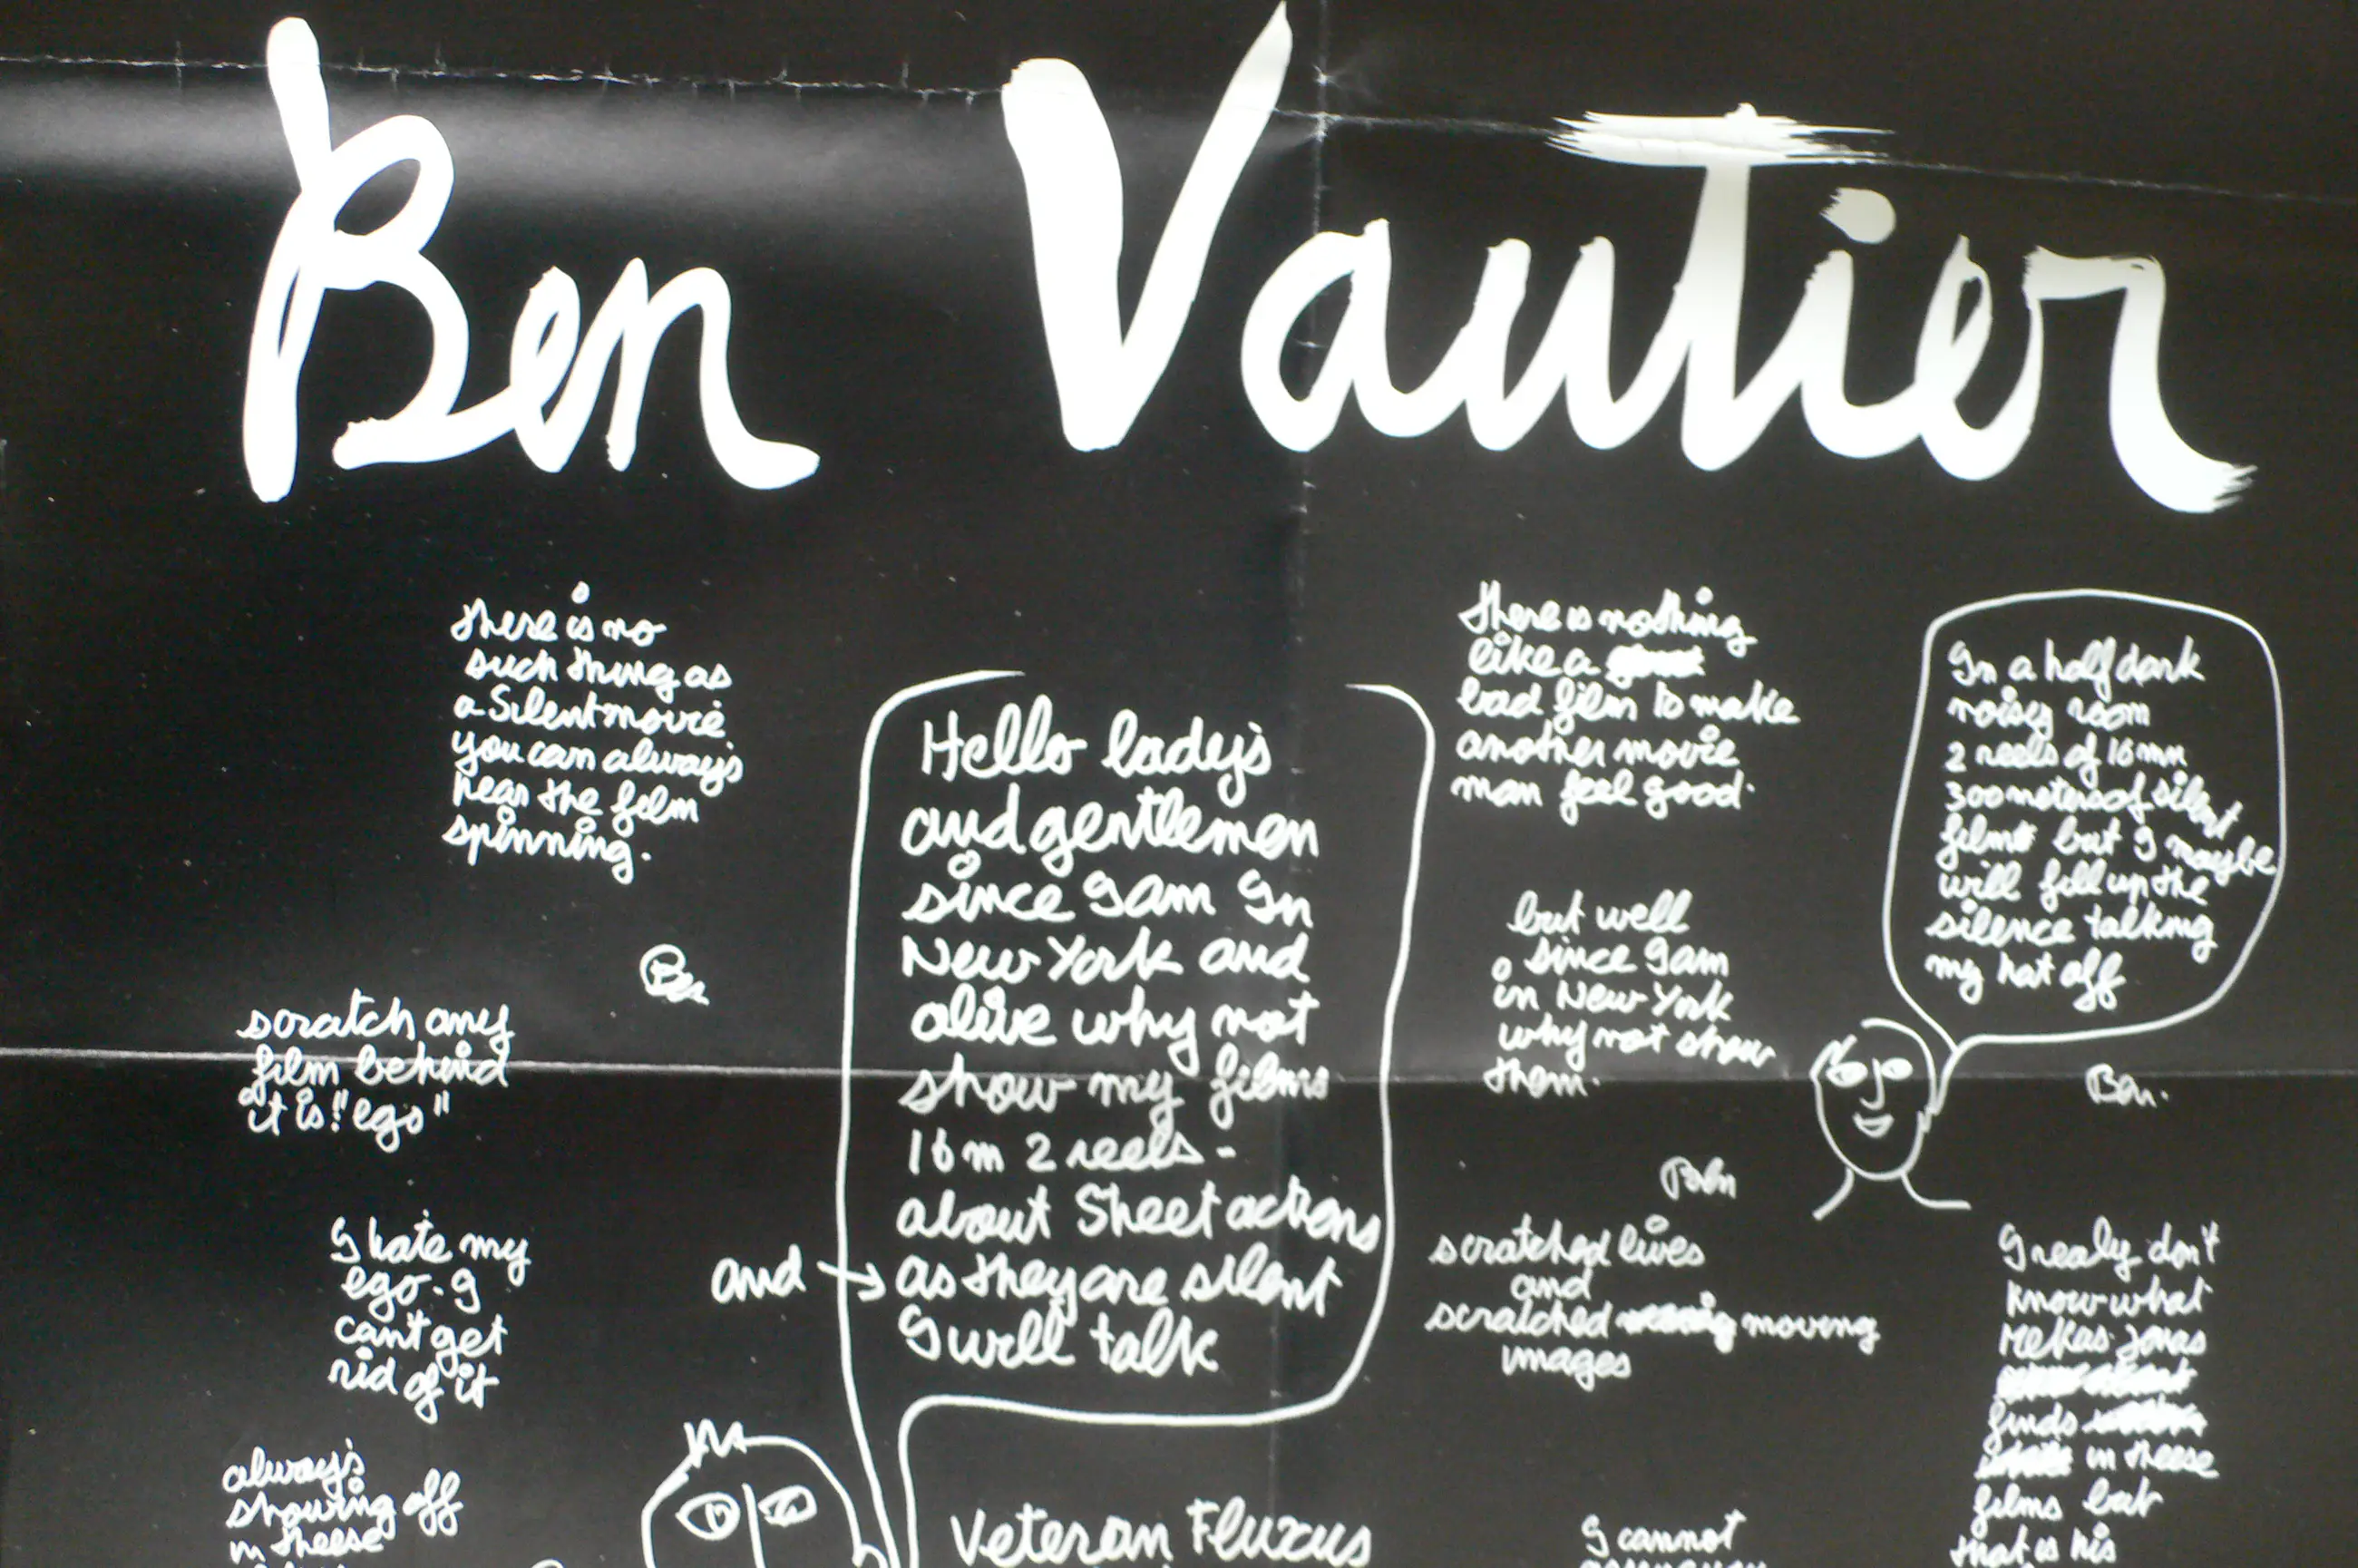 Ben Vautier
there is no
such thing as
a Silent movie
you can always
hear the film
spinning.
Ben
scratch any
film behind
it is "ego"
I hate my
ego. I
can't get
rid of it
always
showing off
in theese
Hello lady's
and gentlemen
since I am In
New York and
alive why not
show my films
16 m 2 reels -
about Street actions
and → as they are silent
I will talk
Veteran Fluxus
there is nothing
like a
bad film to make
another movie
man feel good.
but well
since I am
in New York
why not show
them.
Ben
scratched lives
and
scratched moving
images
I cannot
In a half dark
noisy room
2 reels of 16 mm
300 meters of silent
films but I maybe
will fill up the
silence talking
my hat off
Ben.
I realy don't
know what
Mekas Jonas
finds
in theese
films but
that is his